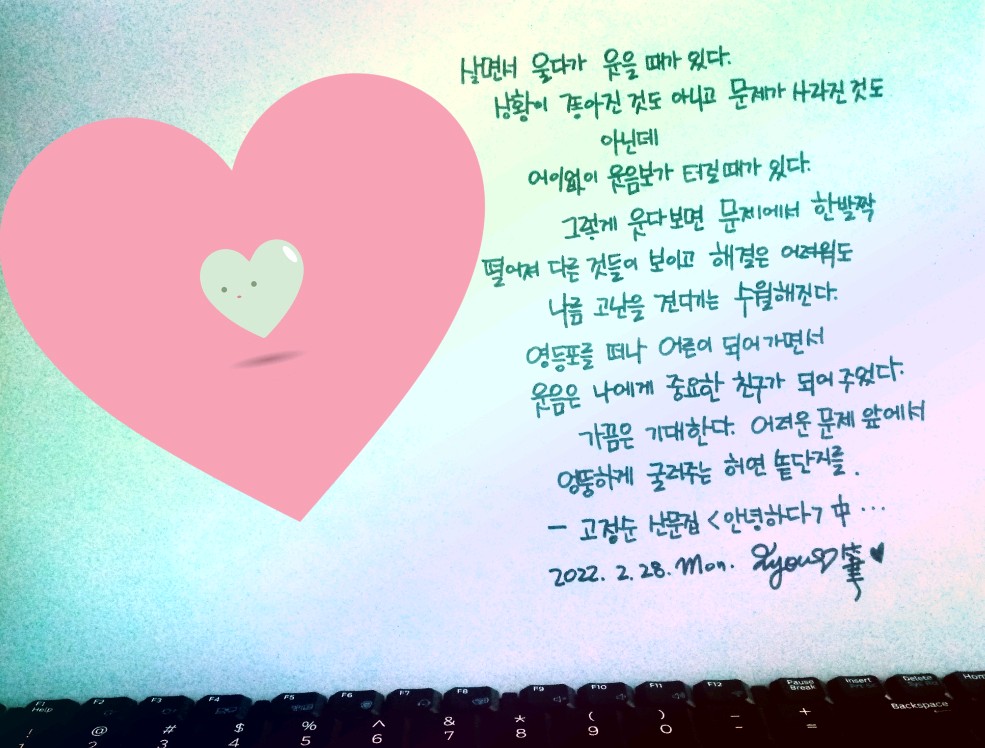 살면서 울다가 웃을 때가 있다.
상황이 좋아진 것도 아니고 문제가 사라진 것도
아닌데
어이없이 웃음보가 터질 때가 있다.
그렇게 웃다보면 문제에서 한발짝
떨어져 다른 것들이 보이고 해결은 어려워도
나름 고난을 견디기는 수월해진다.
영등포를 떠나 어른이 되어가면서
웃음은 나에게 중요한 친구가 되어 주었다.
가끔은 기대한다. 어려운 문제 앞에서
엉뚱하게 굴려주는 허연 쑥단지를.
- 고정순 산문집 <안녕하다> 中 ...
2022. 2. 28. Mon.
F1 F2 F3 F4 F5 F6 F7 F8 F9 F10 F11 F12 Pause Break Insert Delete Hom
Help
Backspace
! @ # $ % ^ & * ( ) _ +
1 2 3 4 5 6 7 8 9 0 - =